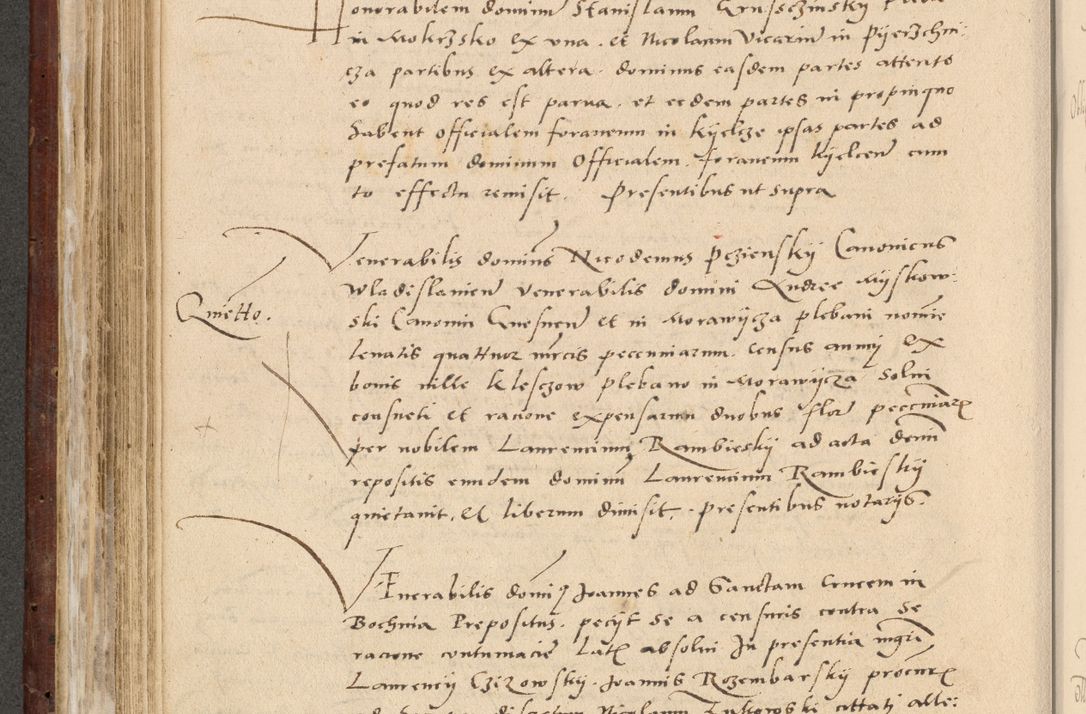 onorabilem dominum Stanislaum
in Mokrzsko ex una. et Nicolaum Vicariũ in Pyerzchni
cza partibus ex altera. dominus easdem partes attento
eo quod res est parua. et eedem partes in propinquo
habent officialem foraneum in Kyelcze ipsas partes ad
prefatum dominum Officialem. foraneum Kyelceñ cum
to effectu remisit. Presentibus ut supra
Venerabilis dominus Nicodemus Pcziensky Canonicus
Wladislauieñ venerabilis domini Andree Myskow:
Quietto.
ski Canonici Gnesneñ et in Morawycza plebani nomie
lenatis quattuor mrcis pecuniarum. census annuj ex
bonis ville Klesczow plebano in Morawycza Solui
consueti et racione expensarum duobus flor pecuniarz
per nobilem Laurencium Rambiesky ad acta domi
repositis eundem dominum Laurencium Rambiesky
quietauit, et liberum dimisit. Presentibus notarijs.
VEnerabilis domi9 Joannes ad Sanctam Crucem in
Bochnia Prepositus. pecijt se a censuris contra se
racione contumacie Latz absolui In presentia mgri
Laurencij Czizowsky. Joannis Rozembarsky procurr
Nicolaum Zukowski cittati alle: